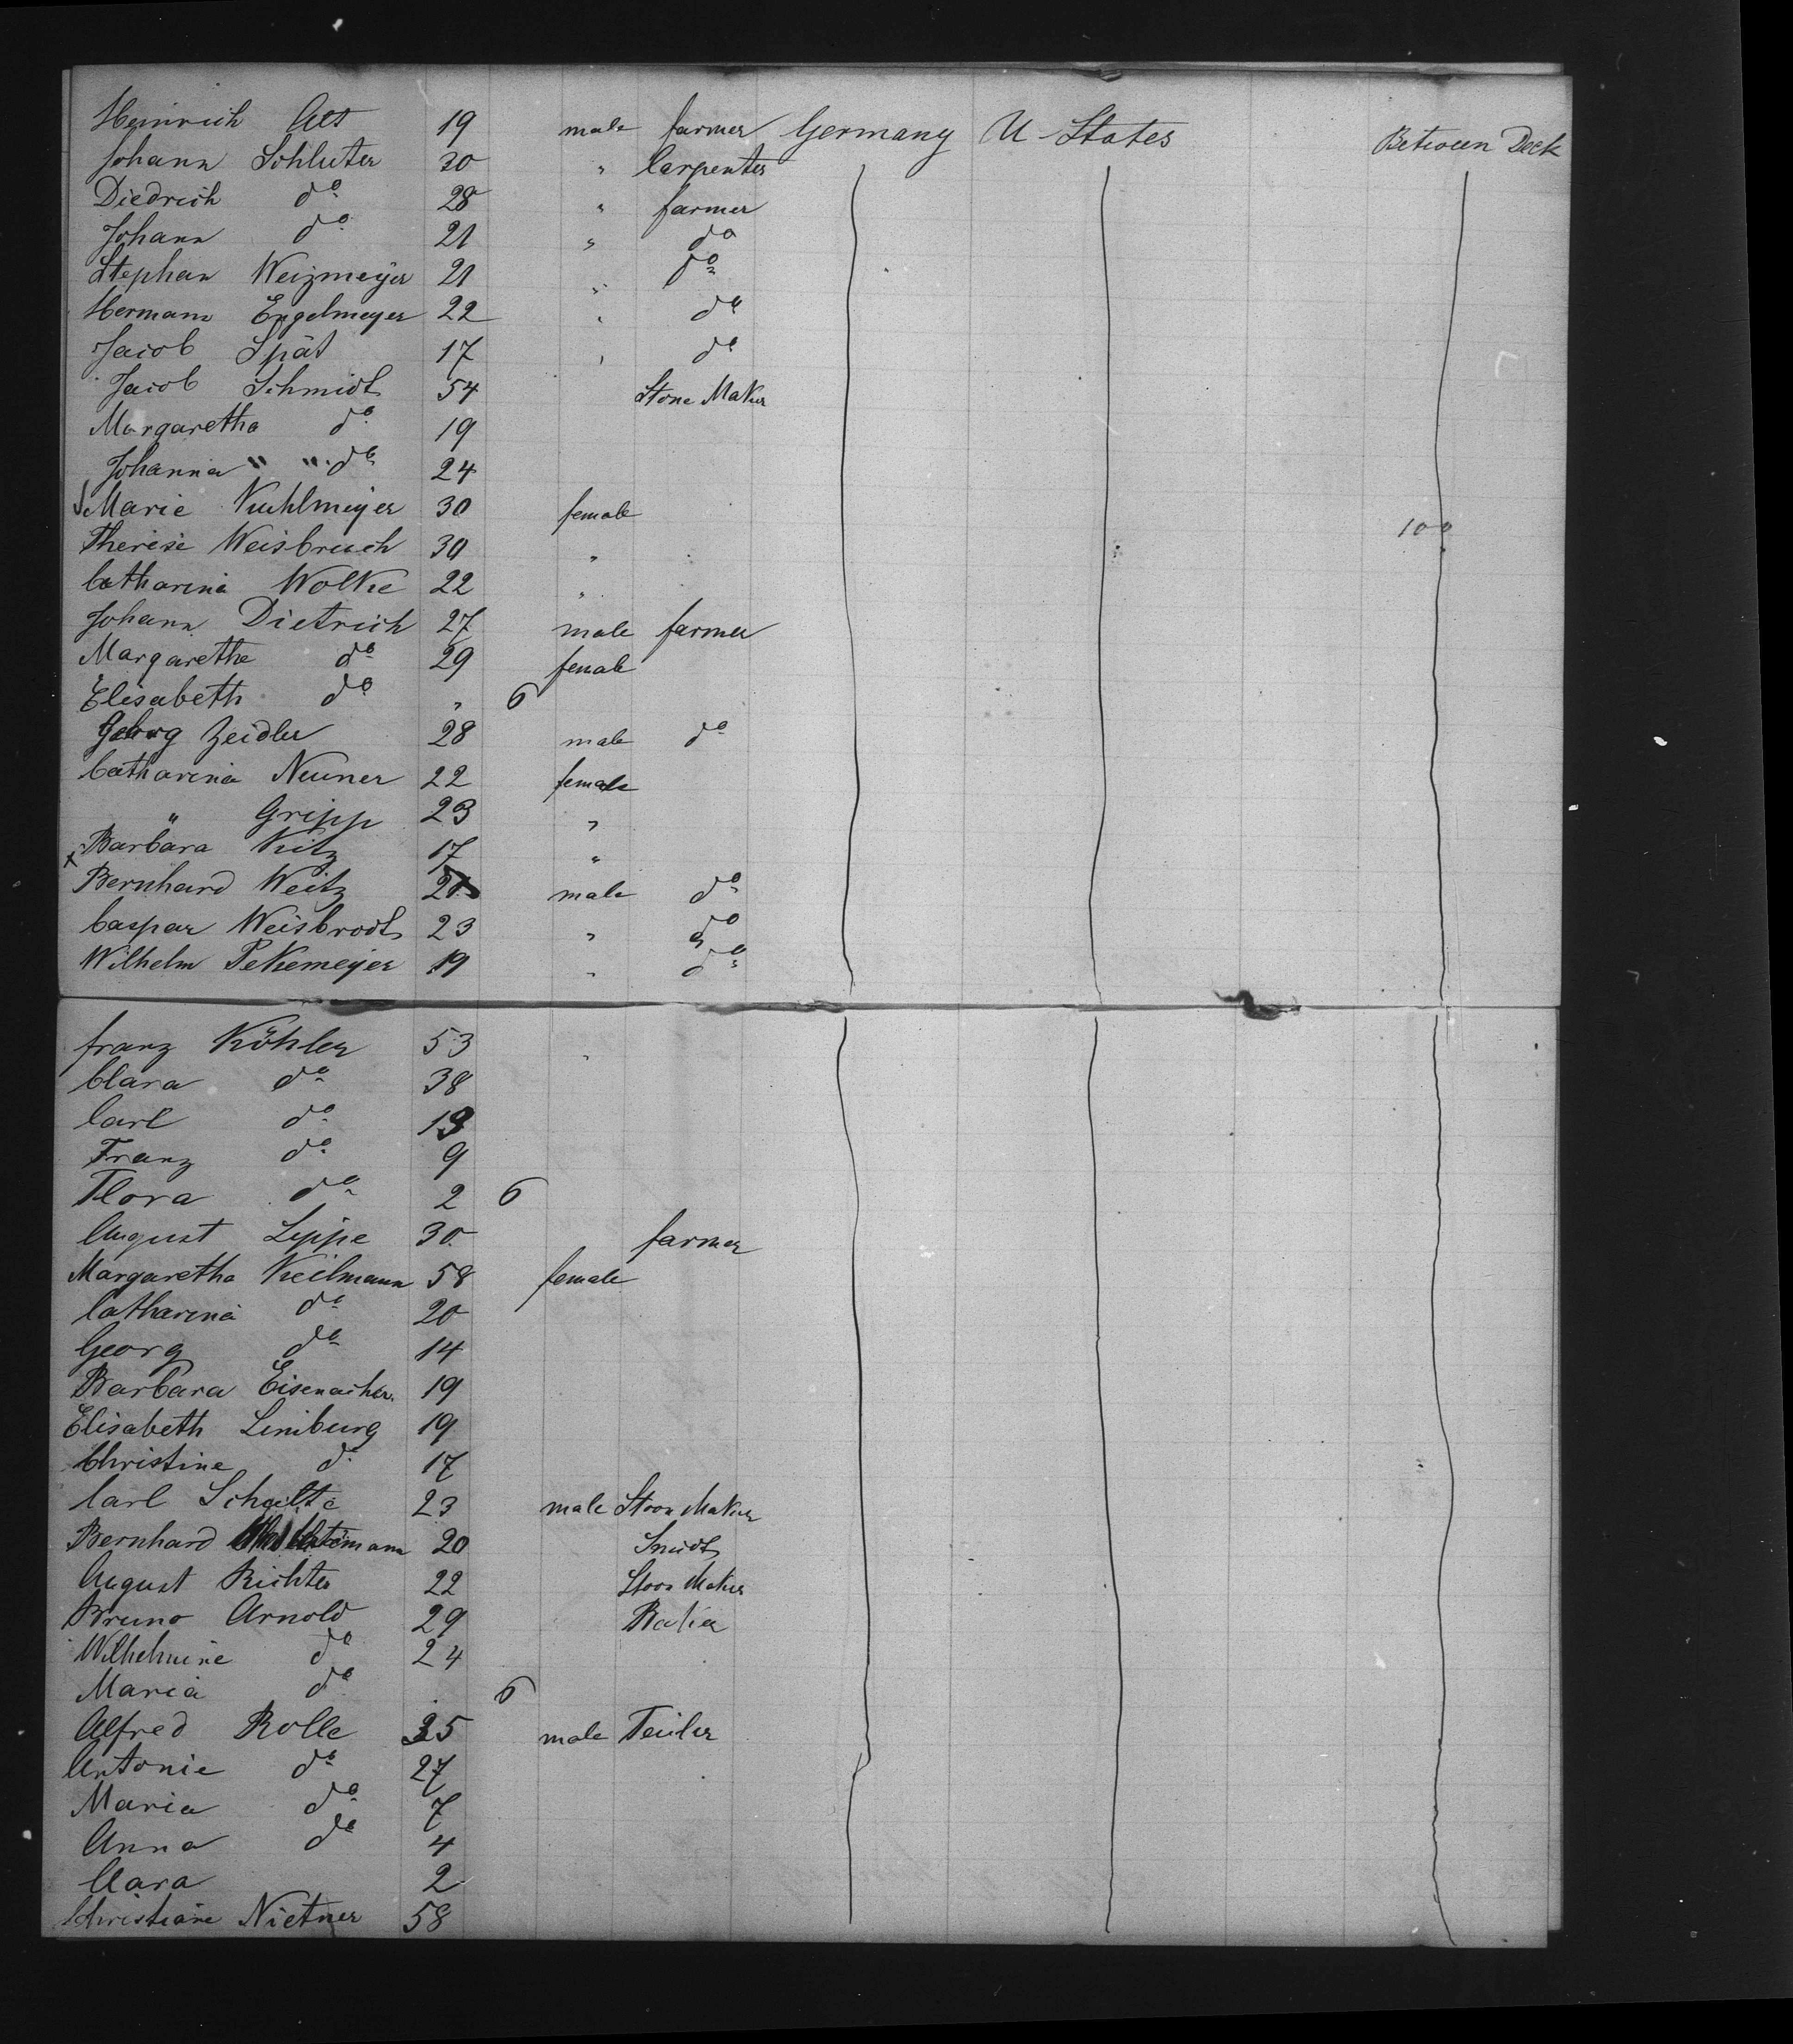 Heinrich Alt 19 male farmer Germany U-States Between Deck
Johann Schluter 30 " Carpenter
Diedrich do 28 " farmer
Johann do 21 " do
Stephan Weizmeyer 21 " do
Hermann Engelmeyer 22 " do
Jacob Spät 17 " do
Jacob Schmidt 54 Stone Maker
Margaretha do 19
Johanna " " do 24
Marie Kuhlmeyer 30 female
100
Therese Weisbruch 30 "
Catharina Wolke 22 "
Johann Dietrich 27 male farmer
Margarethe do 29 female
Elisabeth do " 6
Georg Zeidler 28 male do
Catharina Neuner 22 female
" Gripp 23 "
x Barbara Kitz 17 "
Bernhard Weitz male do
Caspar Weisbrodt 23 " do
Wilhelm Pekemeyer 19 " do
franz Köhler 53 "
Clara do 38
Carl do 13
Franz do 9
Flora do 2 6
August Leppe 30 farmer
Margaretha Keilmann 58 female
Catharina do 20
Georg do 14
Barbara Eisenacher 19
Elisabeth Limburg 19
Christine do 17
Carl Schulte 23 male Stoon Maker
Bernhard 20 Smidt
August Richter 22 Stoon Maker
Bruno Arnold 29 Baker
Wilhelmine do 24
Maria do 6
Alfred Rolle 35 male Teiler
Antonie do 27
Maria do 7
Anna do 4
Clara 2
Christiane Nietner 58